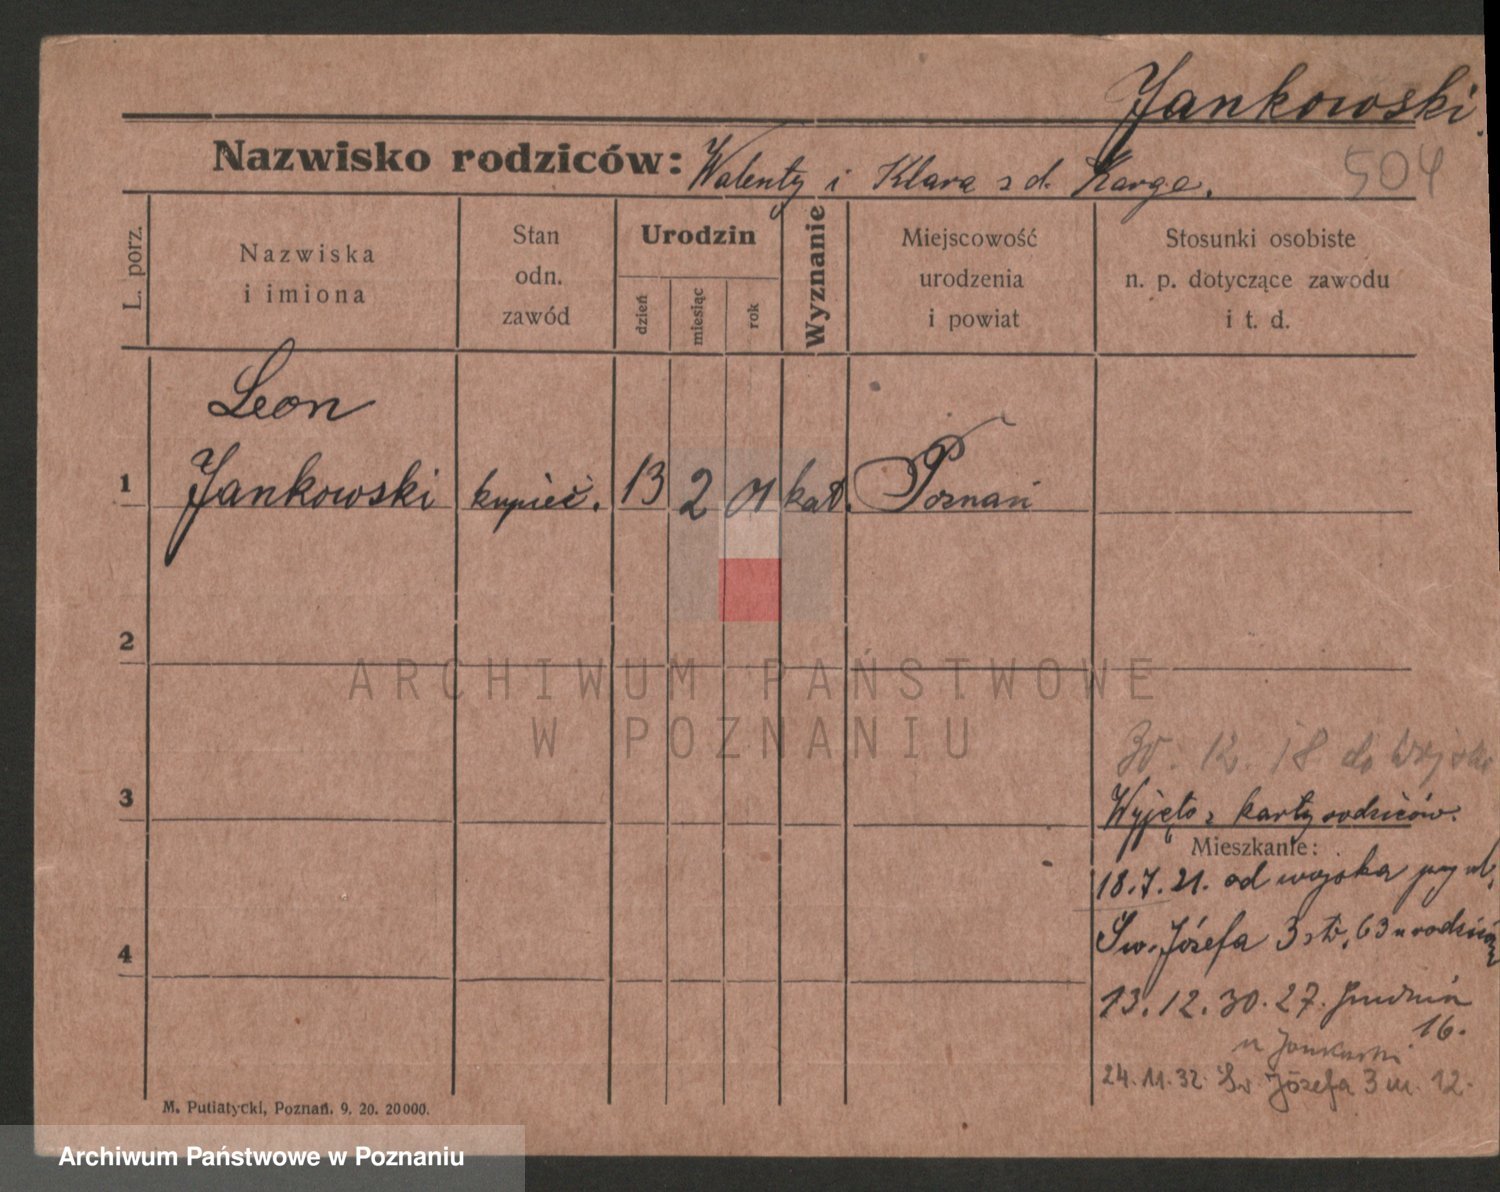 Jankowski.
504
Nazwisko rodziców: Walenty i Klara z d. Karge.
L. porz.
Nazwiska
i imiona
Stan
odn.
zawód
Urodzin
dzień
miesiąc
rok
Wyznanie
Miejscowość
urodzenia
i powiat
Stosunki osobiste
n. p. dotyczące zawodu
i t. d.
Leon
1 Jankowski kupiec. 13 2 01 kat. Poznań
2
ARCHIWUM PAŃSTWOWE
W POZNANIU
30. 12. 18 do wojska
3
Wyjęto z karty rodziców.
Mieszkanie:
18.7.21. od wojska przy ul.
4
Św. Józefa 3 63 u rodziców
13.12.30. 27. Grudnia
16.
u
24.11.32. Św Józefa 3 m. 12.
M. Putiatycki, Poznań. 9. 20. 20000.
Archiwum Państwowe w Poznaniu